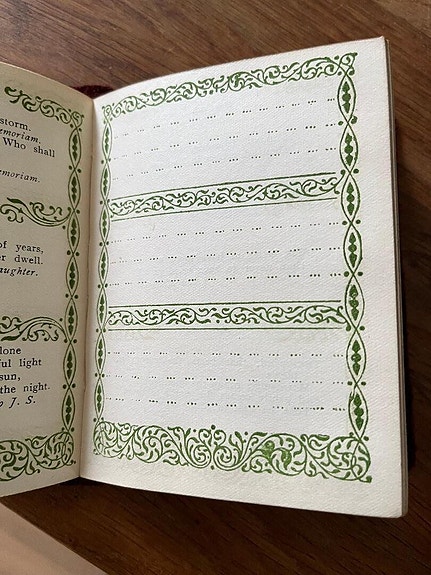 storm.
emoriam.
Who shall
emoriam.
of years,
er dwell.
aughter.
lone
ful light
sun,
the night.
o J. S.